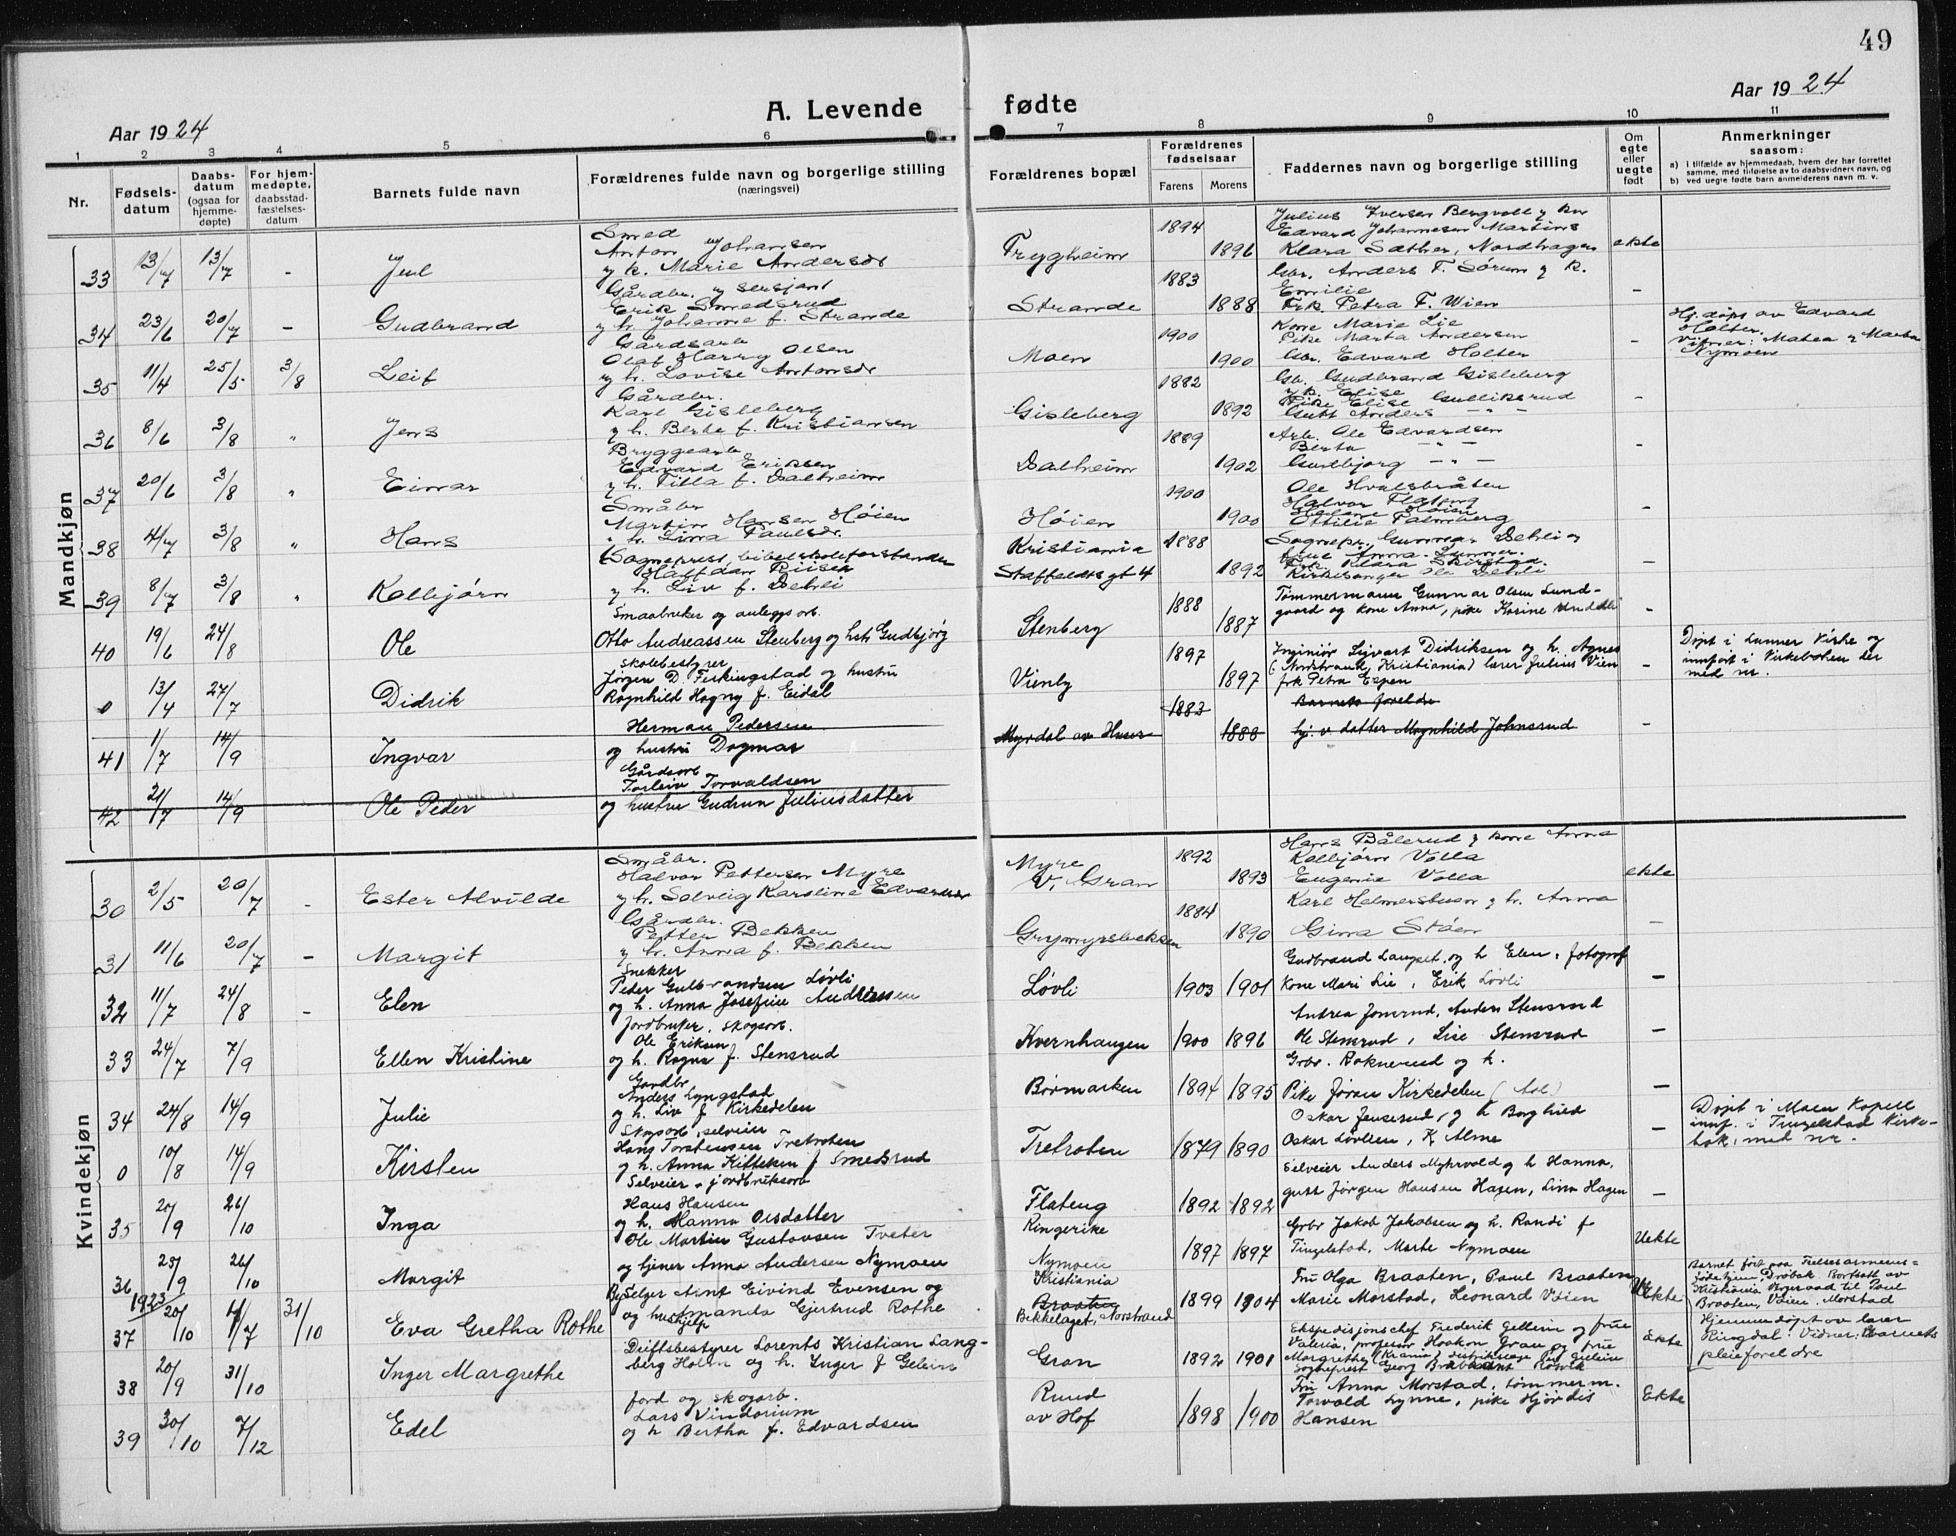 49
Aar 1924
A. Levende fødte
Aar 1924
1 2 3 4 5 6 7 8 9 10 11
Nr.
Fødsels-
datum
Daabs-
datum
(ogsaa for
hjemme-
døpte)
For hjem-
medøpte,
daabsstad-
fæstelses-
datum
Barnets fulde navn
Forældrenes fulde navn og borgerlige stilling
(næringsvei)
Forældrenes bopæl
Forældrenes
fødselsaar
Farens Morens
Faddernes navn og borgerlige stilling
Om
egte
eller
uegte
født
Anmerkninger
saasom:
a) i tilfælde av hjemmedaab, hvem der har forrettet
samme, med tilføielse av to daabsvidners navn, og
b) ved uegte fødte barn anmelderens navn m. v.
Mandkjøn
33 13/7 13/7 - Jul
Smed
Anton Johansen
og k. Marie Andersdr
Trygheim 1894 1896
Julius Iversen Bergvoll og kone
Edvard Johannesen Martins
Klara Sæther, Nordhagen
ekte
34 23/6 20/7 - Gudbrand
Gårdbr. og sersjant
Erik Smedsrud
og h. Johanne f. Strande
Strande 1883 1888
Gbr. Anders T. Sørum og k.
Emilie
Frk. Petra F. Wien
-
35 11/4 25/5 3/8 Leif
Gårdsarb
Olaf Harry Olsen
og h. Lovise Antonsdr
Moen 1900 1900
Kone Marie Lie
Pike Marta Andersen
Gbr. Edvard Holter
-
Hj. døpt av Edvard
Holter.
Vitner: Matea og Marta
Nymoen
36 8/6 3/8 " Jens
Gårdbr.
Karl Gisleberg
og h. Berte f. Kristiansen
Gisleberg 1882 1892
Gb. Gudbrand Gisleberg
og k. Elise
Pike Elise Gulliksrud
Gutt Anders - " -
-
37 20/6 3/8 " Einar
Bryggearb
Edvard Eriksen
og h. Tilla f. Dalheim
Dalheim 1889 1902
Arb. Ole Edvardsen
Berta - " -
Gudbjørg - " -
-
38 4/7 3/8 " Hans
Småbr
Martin Hansen Høien
" h. Lina Paulsdr.
Høien 1900 1900
Ole Hvalsbråten
Halvor Flateng
Helene Høien
Ottilie Palmberg
-
39 8/7 3/8 " Kolbjørn
Sogneprest, bibelskoleforstander
Halfdan Riiser
og h. Liv f. Dehli
Kristiania
Staffeldts gt 4 1888 1892
Sognepr. Gunnar Dehli og
frue Anna. Lunner.
Frk. Klara Skirstad.
Kirkesanger Ole Dehli
-
40 19/6 24/8 Ole
Smaabruker og anleggsarb.
Otto Andreassen Stenberg og hstr Gudbjørg
Stenberg 1888 1887
Tømmermann Gunnar Olsen Lund-
gaard og kone Anna, pike Karine
-
0 13/4 27/7 Didrik
Skolebestyrer
Jørgen D. Ferkingstad og hustru
Ragnhild Hagny f. Eidal
Vienby 1897 1897
Ingeniør Sigvart Didriksen og h. Agnes
(Nordstrand, Kristiania) lærer Julius Vien
frk Petra Espen
-
Døpt i Lunner Kirke og
innført i Kirkeboken der
med nr.
41 1/7 14/9 Ingvar
Herman Pedersen
og hustru Dagmar
Myrdal av Huser 1883 1888
Barnets foreldre
hj. v. datter Magnhild Johnsrud
-
42 21/7 14/9 Ole Peder
Gårdsarb
Torleiv Torvaldsen
og hustru Gudrun Juliusdatter
Kvindekjøn
30 2/5 20/7 - Ester Alvilde
Småbr.
Halvor Pettersen Myre
og h. Solveig Karoline Edvardsen
Myre
V. Gran 1892 1893
Hans Bålerud og kone Anna
Kolbjørn Volla
Eugenie Volla
ekte
31 11/6 20/7 - Margit
Gårdbr.
Petter Bekken
og h. Anna f. Bekken
Grymyrsbekken 1884 1890
Karl Helmersbusen og h. Anna
Gina Støen
-
32 11/7 24/8 - Elen
Snekker
Peder Gulbrandsen Løvli
og h. Anna Josefine Andreassen
Løvli 1903 1901
Gudbrand Langset, og h Elen, fotograf
Kone Mari Lie, Erik Løvli
-
33 24/7 7/9 Ellen Kristine
Jordbruker, skogsarb.
Ole Eriksen
og h. Ragna f. Stensrud
Kvernhaugen 1900 1896
Andrea Jonsrud, Anders Stensrud
Ole Stensrud, Lise Stensrud
-
34 24/8 14/9 Julie
Gardbr
Anders Lyngstad
og h. Liv f Kirkedelen
Børmarken 1894 1895
Grbr. Roknerud og h.
Pike Jøran Kirkedelen (Aal)
-
0 10/8 14/9 Kirsten
Skogsarb, selveier
Hans Torstensen Tretroten
og h. Anna Kitteken f Smedsrud
Tretroten 1879 1890
Oskar Jenserud, og h Borghild
Oskar Løvlien, K. Alma
-
Døpt i Moen Kapell
innf. i Tingelstad Kirke-
bok, med nr.
35 20/9 26/10 Inga
Selveier - jordbruksarb
Hans Hansen
og h. Hanna Olsdatter
Flateng
Ringerike 1892 1892
Selveier Anders Myhrvold og h Hanna,
gutt Jørgen Hansen Hagen, Lina Hagen
-
36 25/9 26/10 Margit
Ole Martin Gustavsen Tveter
og tjener Anna Andersen Nymoen
Nymoen 1897 1897
Grbr Jakob Jakobsen og h. Randi f
Tingelstad, Marte Nymoen
Uekte
37 1923 20/10 4/7 31/10 Eva Gretha Rothe
Selger Arnt Eivind Evensen og
og hushjelp Amanda Gjertrud Rothe
Kristiania
Braaten
Bekkelaget, Norstrand 1899 1904
Fru Olga Braaten, Paul Braaten
Marie Morstad, Leonard Vøien
Uekte
Barnet født paa Frelsesarmeens
fødehjem, Drøbak. Bortsatt av
Kristiania Vergeraad til Paul
Braaten, Vøien, Morstad
Hjemmedøpt av lærer
Ringdal. Vidner: Barnets
pleieforeldre
38 20/9 31/10 Inger Margrethe
Driftsbestyrer Lorents Kristian Lang-
berg Holm og h. Inger f Gelein
Gran 1892 1901
Ekspedisjonschef Frederik Gellein og frue
Valeria, professor Haakon Gran og frue
Margrethe (Krania) distriktslæge Per Gellein
sogneprest Georg
Ekte
39 30/10 7/12 Edel
Jord og skogarb.
Lars Vindorium
og h Bertha f. Edvardsen
Ruud
av Hof 1898 1900
Fru Anna Morstad, tømmerm.
Torvald Lynne, pike Hjørdis
Hansen
Ekte